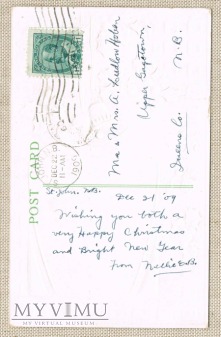 POST CARD
DEC 22
11-AM
St. John, N.B.
Dec 21 '09
Wishing you both a
very Happy Christmas
and Bright New Year
from Nellie E.B.
Mr & Mrs. A. Ludlow
Upper Gagetown,
Queens Co. N.B.
MYVIMU
MY VIRTUAL MUSEUM